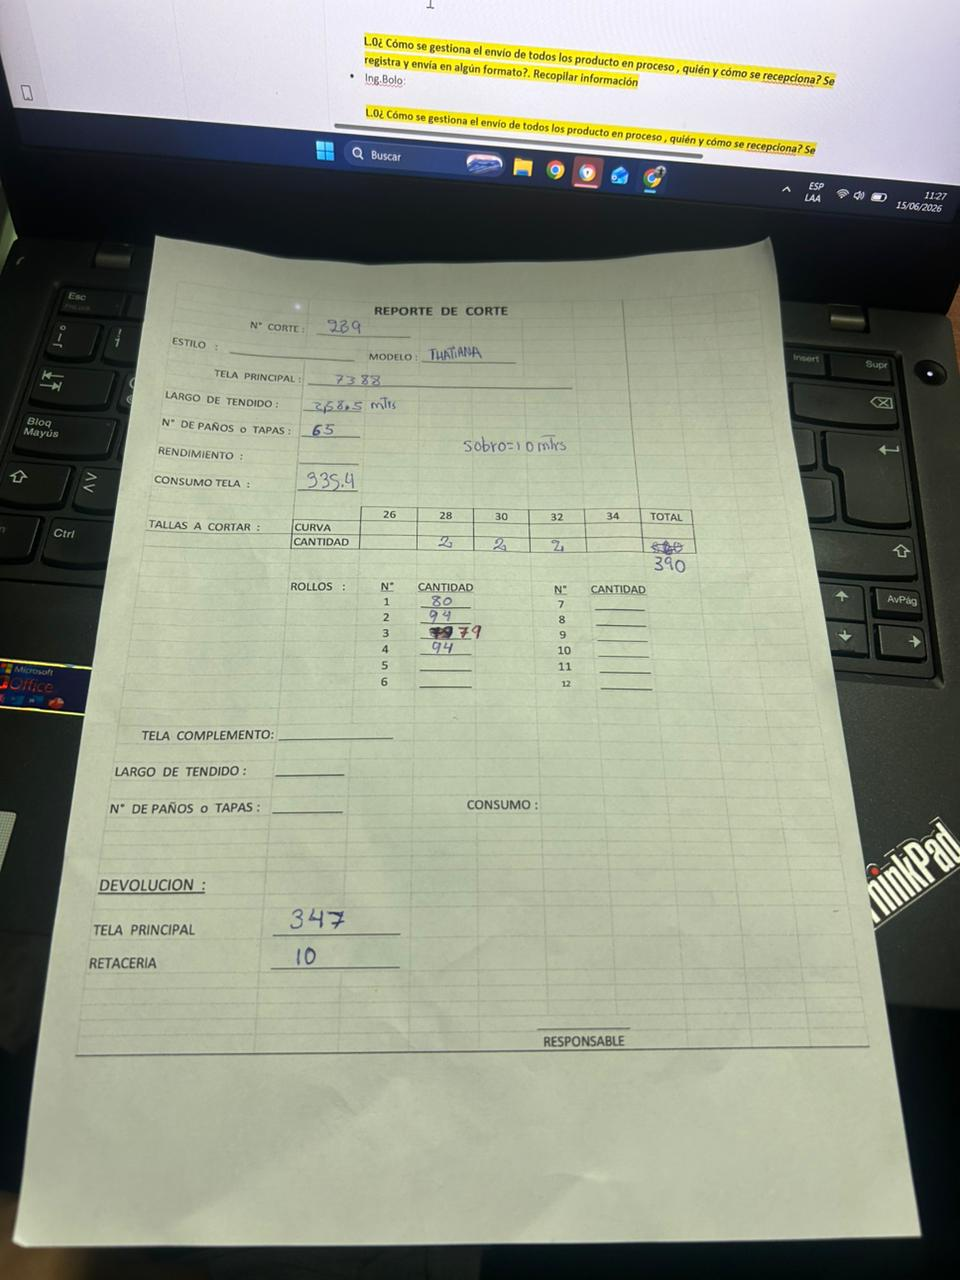 L.0¿ Cómo se gestiona el envío de todos los producto en proceso , quién y cómo se recepciona? Se
registra y envía en algún formato?. Recopilar información
• Ing.Bolo:
L.0¿ Cómo se gestiona el envío de todos los producto en proceso , quién y cómo se recepciona? Se
Buscar
ESP
LAA
11:27
15/06/2026
Esc
Bloq
Mayús
Ctrl
Insert
Supr
AvPág
Microsoft
Office
ThinkPad
REPORTE DE CORTE
N° CORTE : 239
ESTILO :
MODELO : THATIANA
TELA PRINCIPAL : 7388
LARGO DE TENDIDO : mtrs
N° DE PAÑOS o TAPAS : 65
sobro=10 mtrs
RENDIMIENTO :
CONSUMO TELA : 335.4
26 28 30 32 34 TOTAL
TALLAS A CORTAR : CURVA
CANTIDAD 2 2 2
390
ROLLOS : N° CANTIDAD N° CANTIDAD
1 80 7
2 94 8
3 79 9
4 94 10
5 11
6 12
TELA COMPLEMENTO:
LARGO DE TENDIDO :
N° DE PAÑOS o TAPAS : CONSUMO :
DEVOLUCION :
TELA PRINCIPAL 347
RETACERIA 10
RESPONSABLE